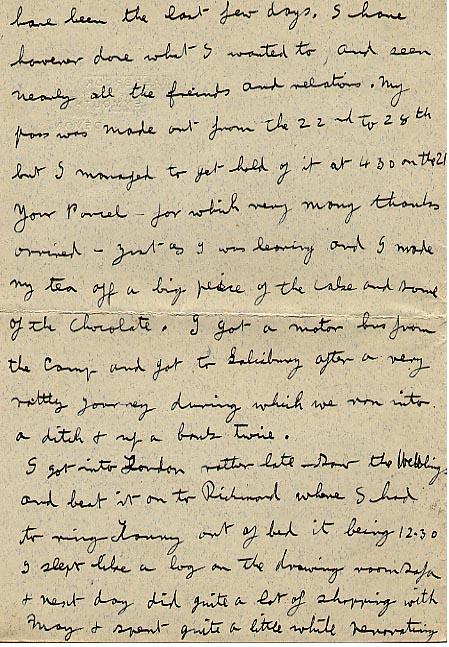 have been the last few days. I have
however done what I wanted to, and seen
nearly all the friends and relations. My
pass was made out from the 22nd to 28th
but I managed to get hold of it at 430 on the 21
Your Parcel - for which very many thanks
arrived - just as I was leaving and I made
my tea off a big peice of the cake and some
of the Chocolate. I got a motor bus from
the Camp and got to Salisbury after a very
rotty journey during which we ran into
a ditch & up a bank twice.
I got into London rather late - saw the
and beat it on to Richmond where I had
to ring Fanny out of bed it being 12.30
I slept like a log on the drawing room sofa
& next day did quite a lot of shopping with
May & spent quite a little while renovating